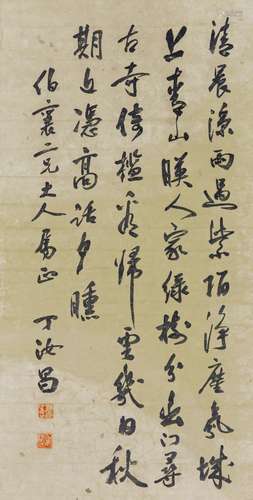 清晨涼雨過紫陌淨塵氛城
上青山暎人家綠樹分出門尋
古寺倚檻看歸雲幾日秋
期近憑高話夕曛
伯襄二兄大人屬正 丁汝昌